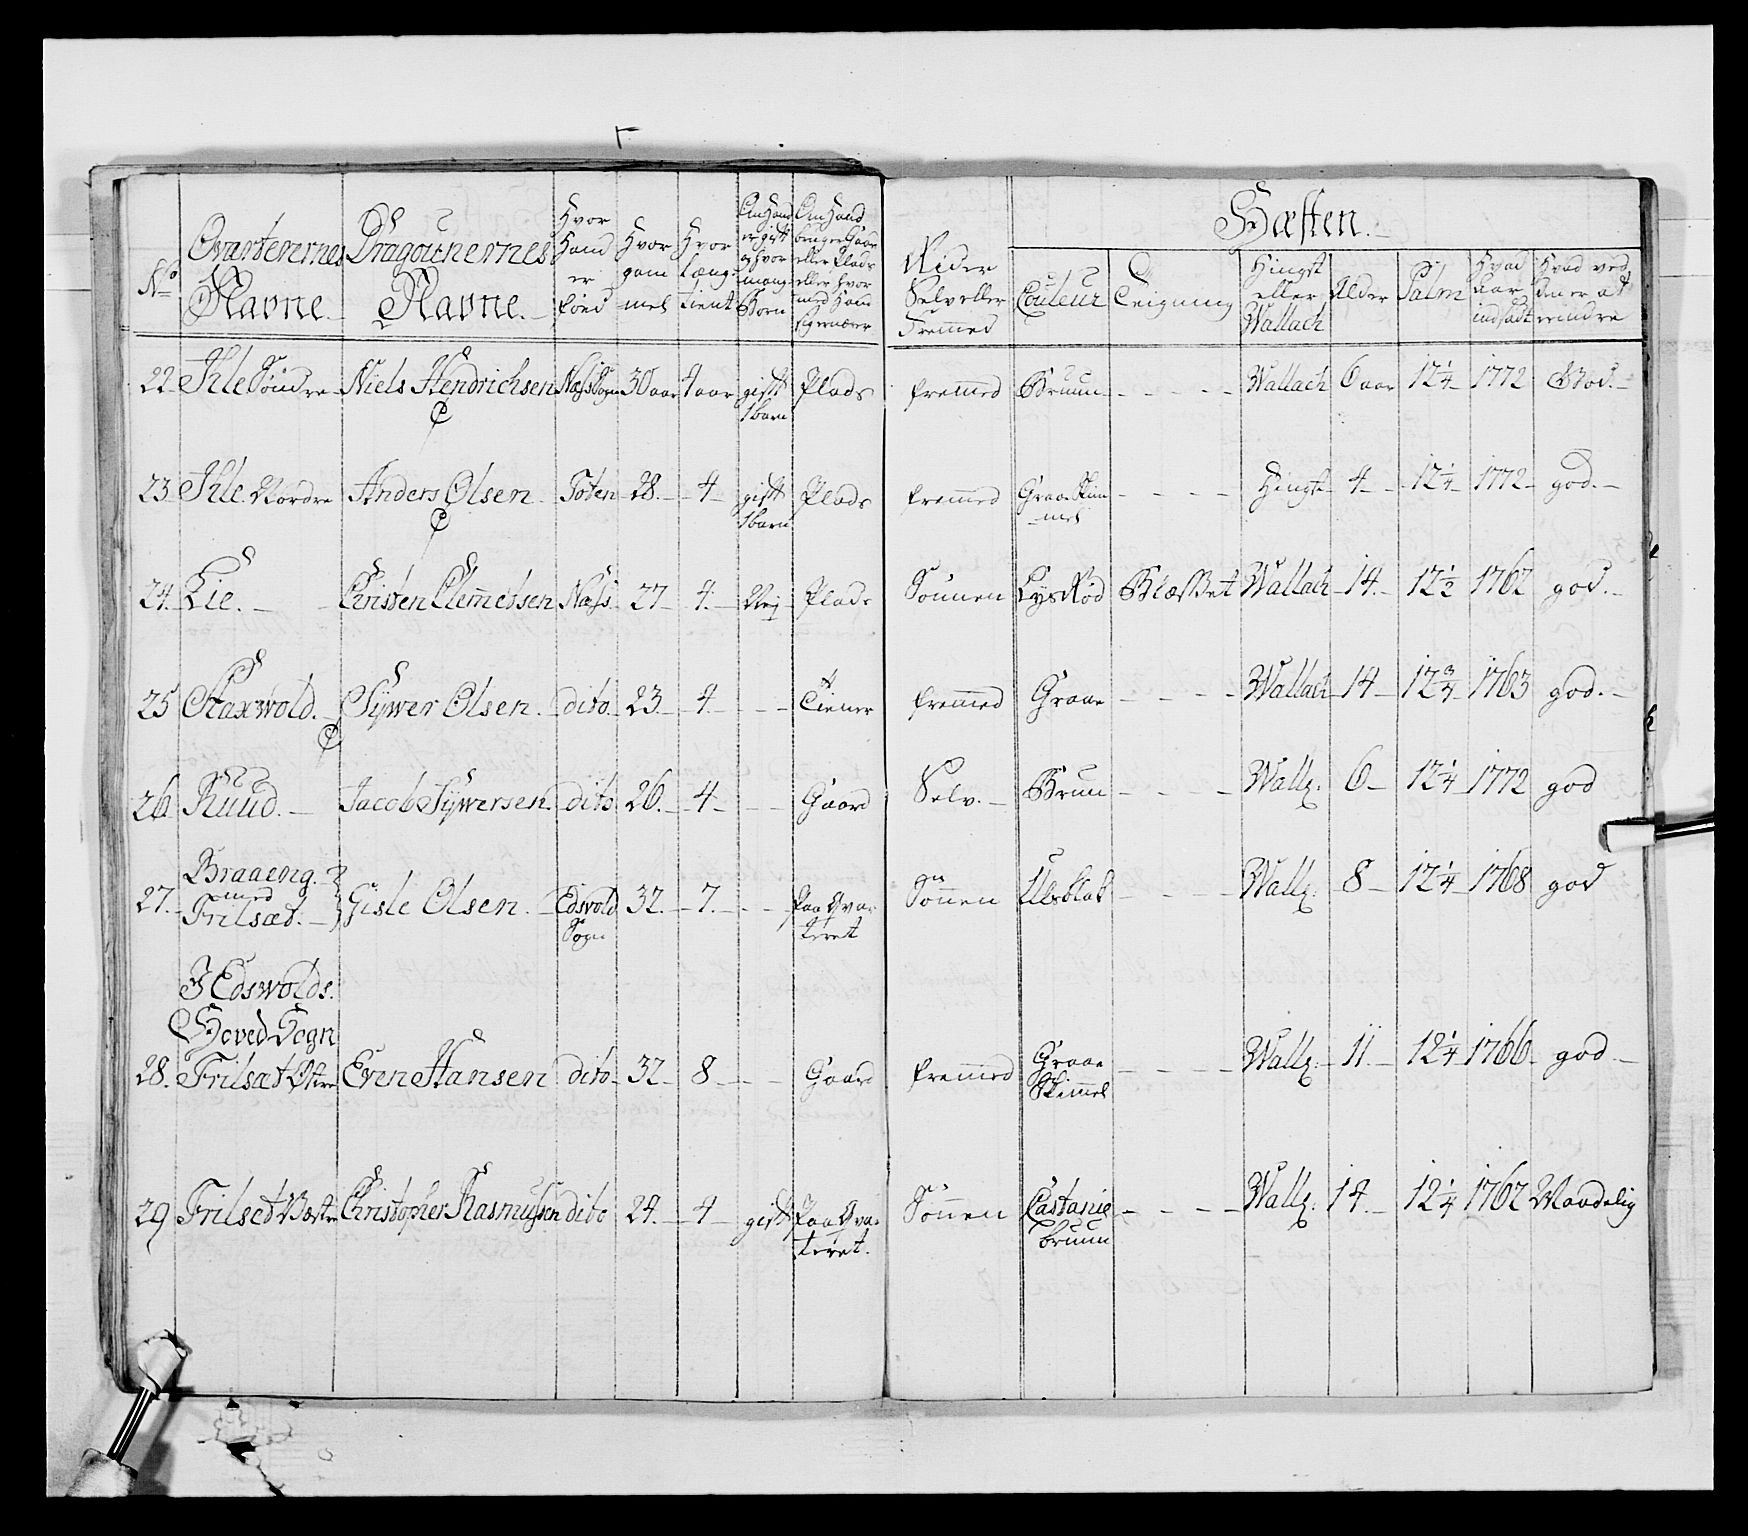 No
Qvarterernes Navne.
Dragounernes Navne.
Hvor Hand er föed
Hvor gam mel
Hvor Læng tient
Om Hand er gift og hvor mang Börn
Om Hand bruger Gaar eller Plads eller hvor med Hand sig ernærer
Rider Selv eller Fremmed
Hæsten.
Couleur
Teigning
Hingst eller Wallach
Alder
Palm
Hvad aar indsadt
Hvad ved den er at erindre
22. Ihle Söndre Niels Hendrichsen Næss Sogn 30 aar 4 aar gift 1 barn Plads fremmed Bruun - - - - Wallach 6 aar 12 1/4 1772 God.
23. Ihle Nordre Anders Olsen Toten 28. 4 gift 1 barn Plads fremmed Graae Skim mel - - - - Hingst 4 12 1/4 1772 god.
24. Lie. Christen Clemmetsen Næss. 27 4. Nej Plads Sönnen Lys Röd Blæsset Wallach 14. 12 1/2 1762 god.
25 Staxwold. Sÿwer Olsen. dito 23. 4. - - Tiener fremmed Graae - - - - Wallach 14 12 3/4 1763 god.
26. Ruud. Jacob Sÿwersen. dito 26. 4 - - Gaard Selv. Brun - - - - Wallz. 6 12 1/4 1772 god
27. Braaeng. med Frilsæt. Gisle Olsen. Edsvold Sogn 32. 7. - - Paa Qvar teret Sönnen Ulsblak - - - - Wallz. 8 12 1/4 1768 god
I Edswolds.
Hoved Sogn
28. Frilsæt Östre Even Hansen dito 32 8 - - Gaard fremmed Graae Skimmel - - - - Wallz. 11. 12 1/4 1766 god
29 Frilset Væstre Christopher Rasmussen dito 24. 4 gift Paa Qvar teret. Sönnen Castanie bruun - - - - Wallz. 14. 12 1/4 1762 Maadelig